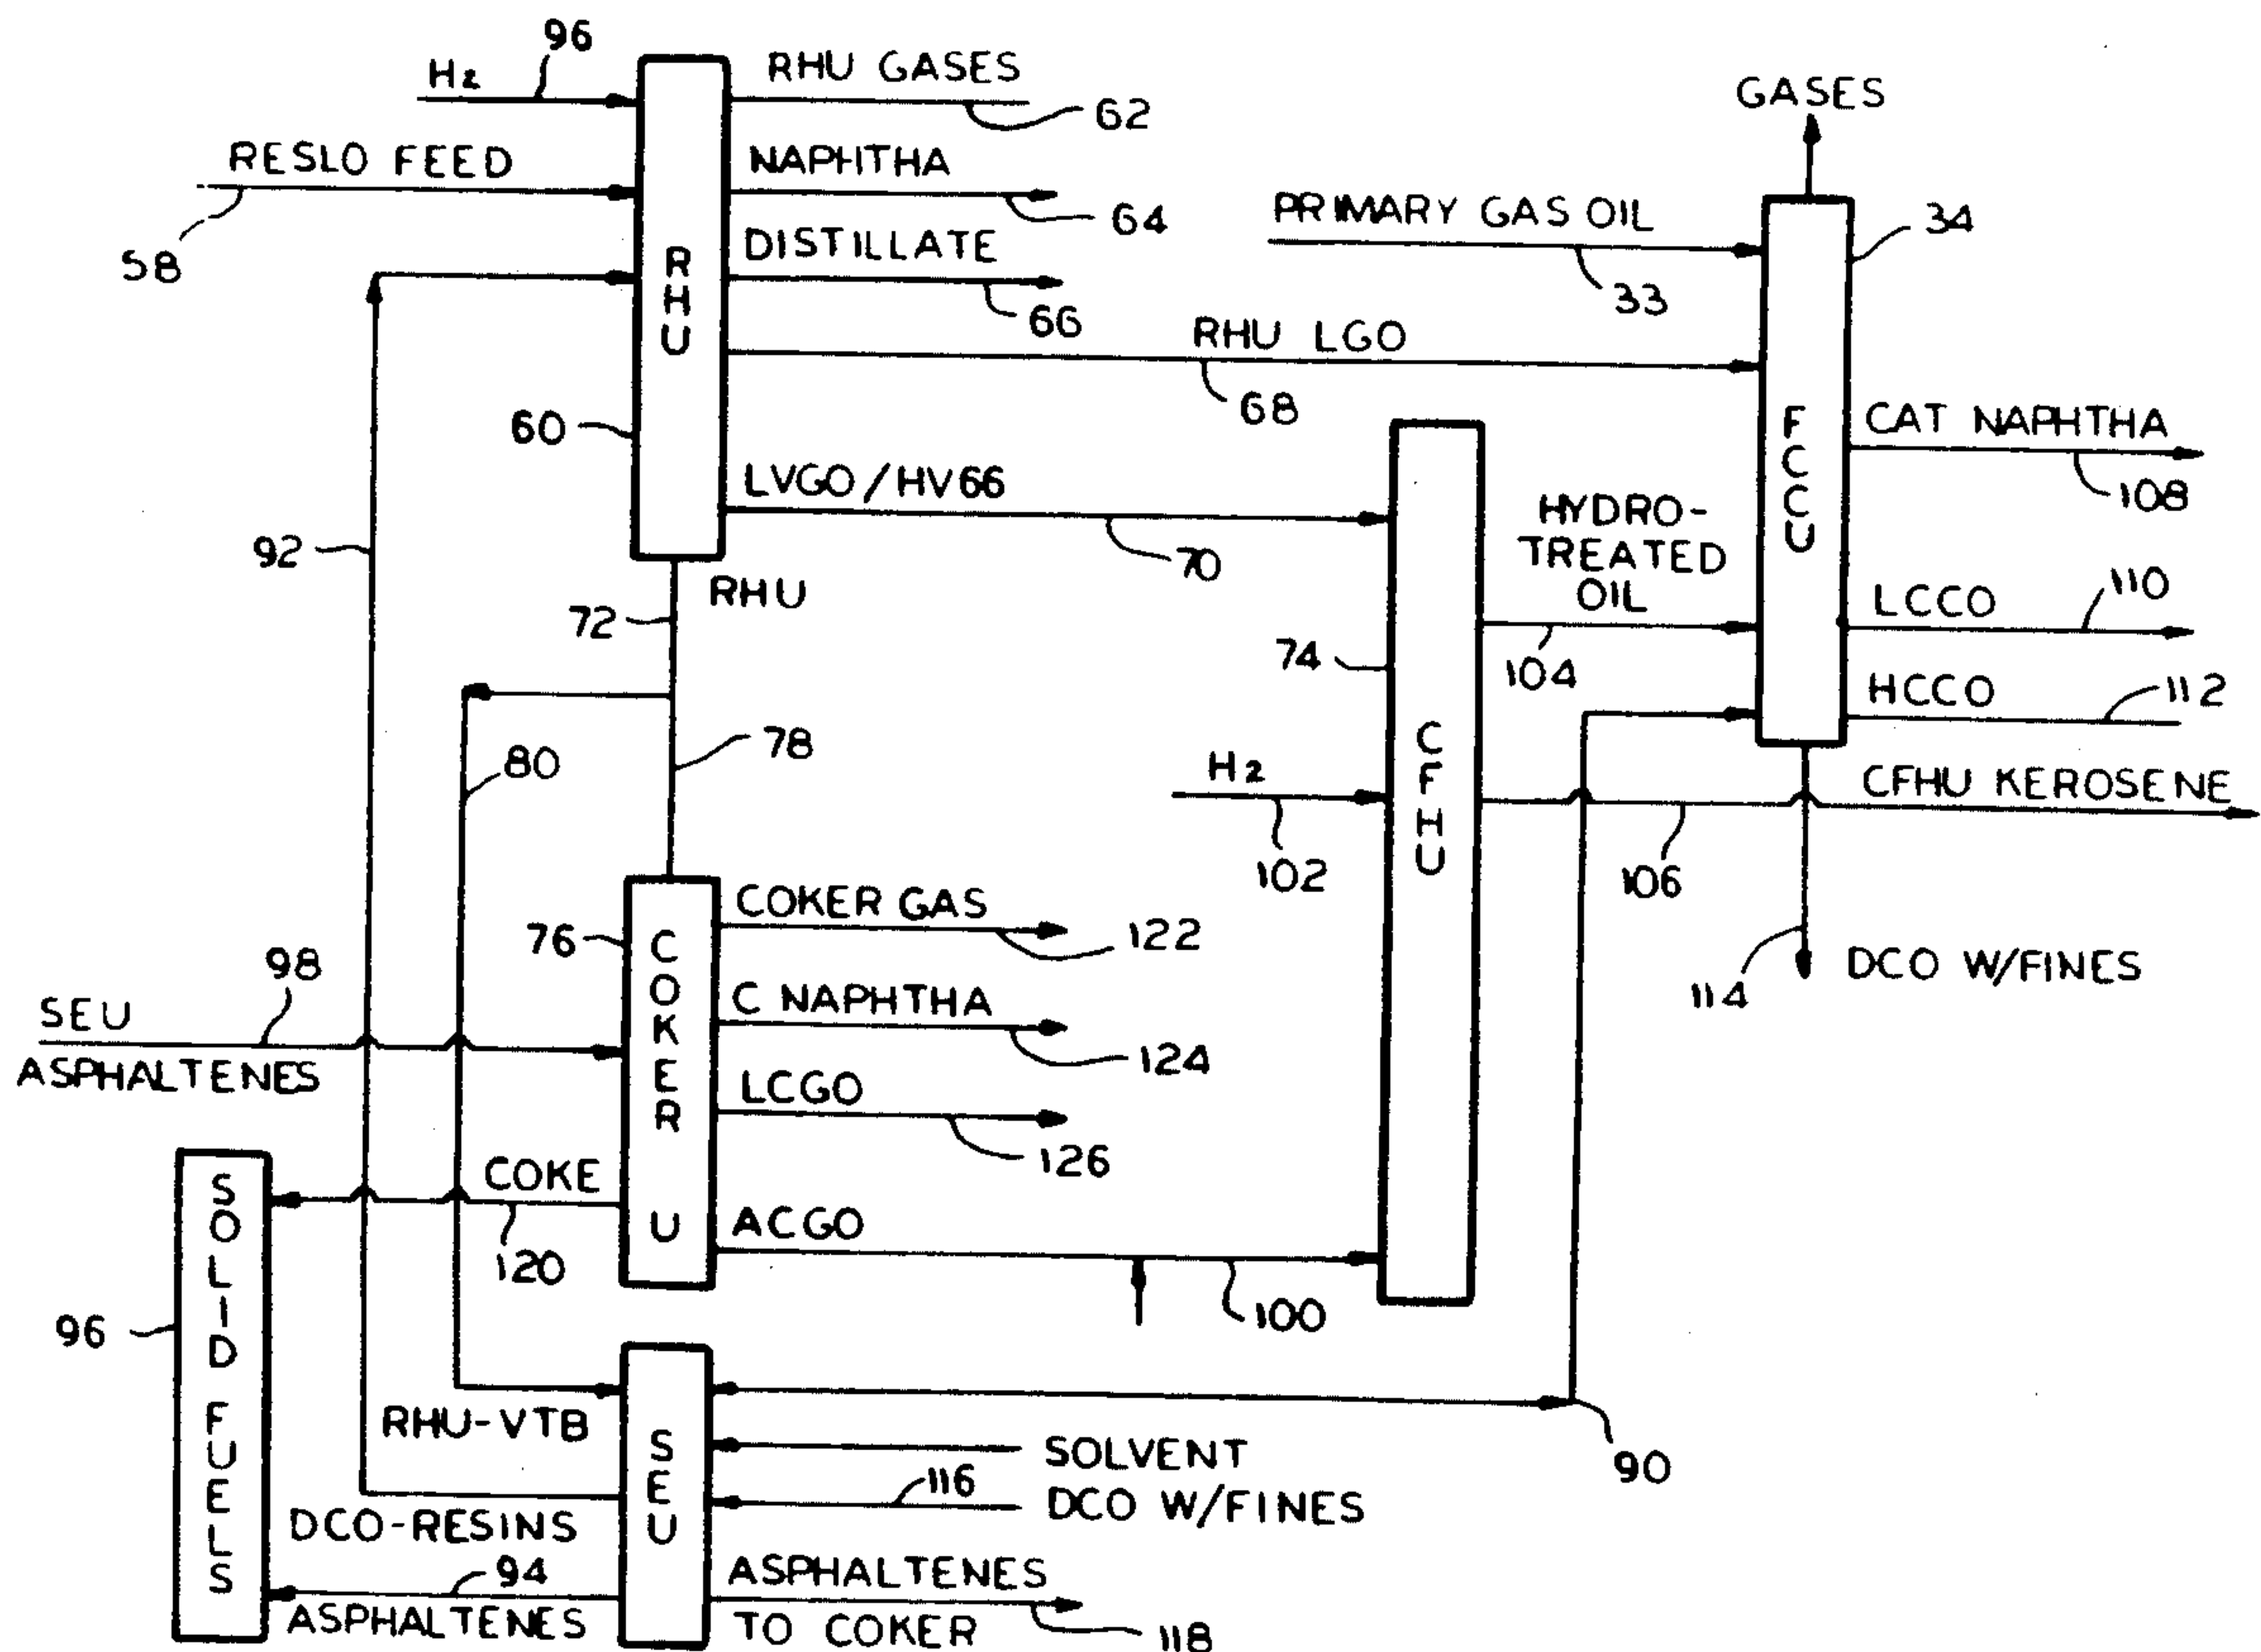 H2
96
RHU GASES
62
RESLO FEED
58
NAPHTHA
64
DISTILLATE
66
RHU
60
RHU LGO
68
LVGO/HV66
70
92
72
RHU
78
80
GASES
PRIMARY GAS OIL
33
34
FCCU
CAT NAPHTHA
108
HYDRO-
TREATED
OIL
104
LCCO
110
HCCO
112
74
CFHU
H2
102
CFHU KEROSENE
106
114
DCO W/FINES
76
COKER U
COKER GAS
122
C NAPHTHA
124
LCGO
126
SEU
98
ASPHALTENES
COKE
120
ACGO
100
96
SOLID FUELS
RHU-VTB
SEU
90
SOLVENT
116
DCO W/FINES
DCO-RESINS
94
ASPHALTENES
ASPHALTENES
TO COKER
118